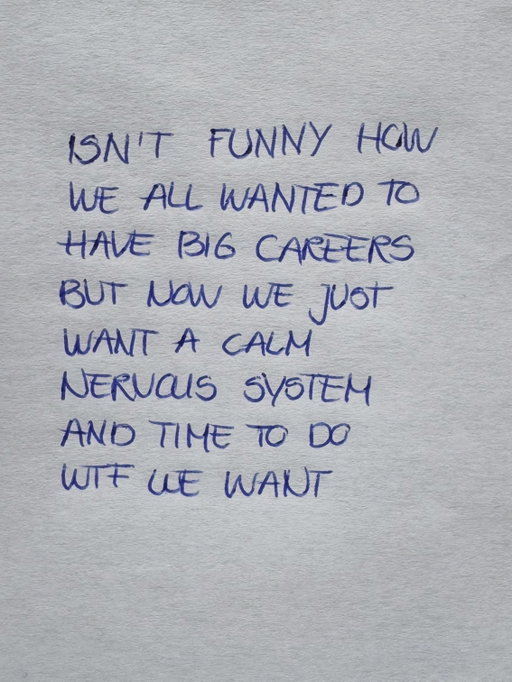 ISN'T FUNNY HOW
WE ALL WANTED TO
HAVE BIG CAREERS
BUT NOW WE JUST
WANT A CALM
NERVOUS SYSTEM
AND TIME TO DO
WTF WE WANT